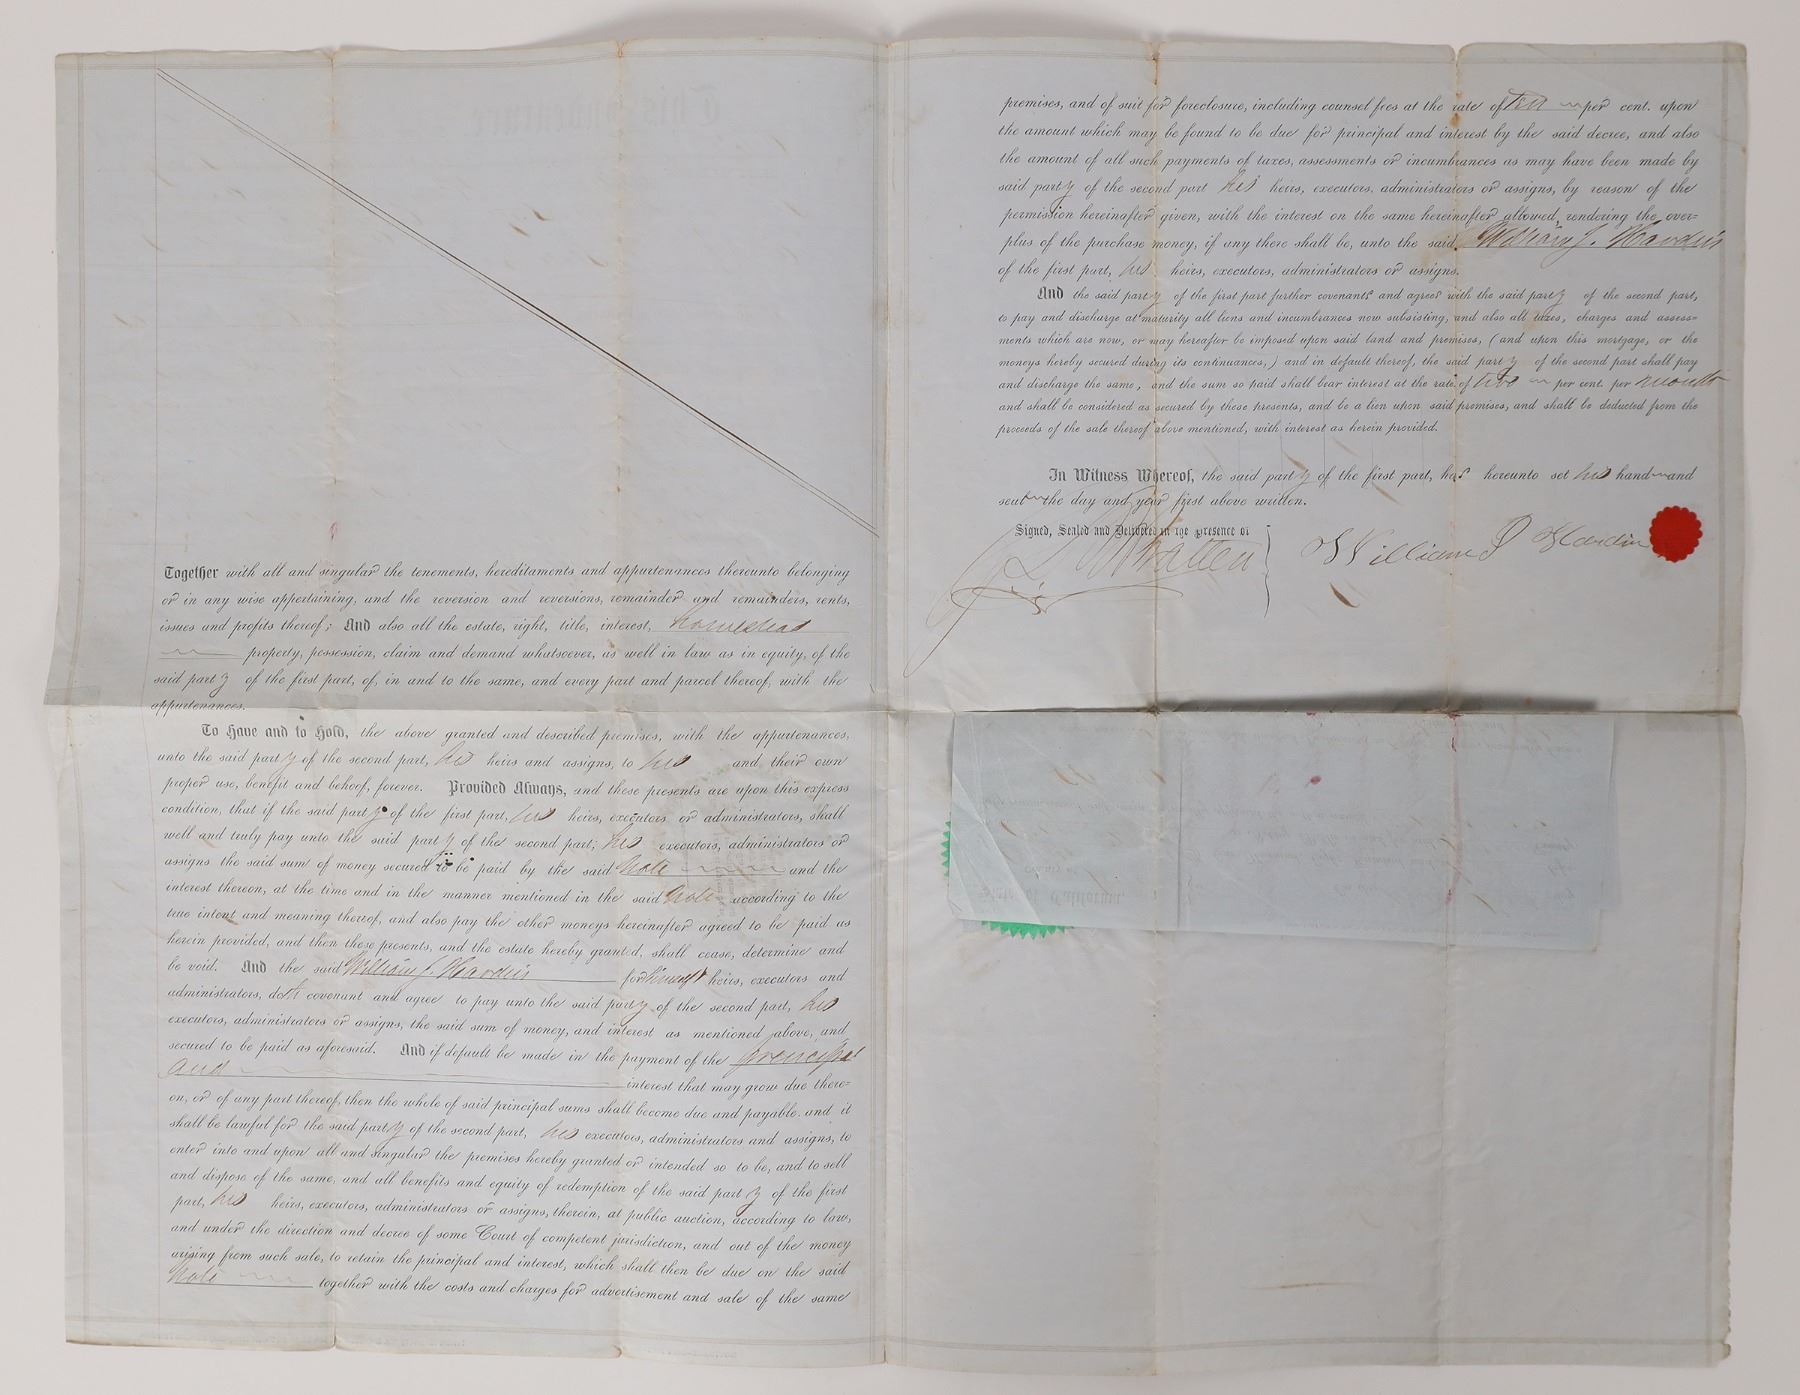 Together with all and singular the tenements, hereditaments and appurtenances thereunto belonging
or in any wise appertaining, and the reversion and reversions, remainder and remainders, rents,
issues and profits thereof; And also all the estate, right, title, interest, homestead
property, possession, claim and demand whatsoever, as well in law as in equity, of the
said party of the first part, of, in and to the same, and every part and parcel thereof, with the
appurtenances.
To Have and to Hold, the above granted and described premises, with the appurtenances,
unto the said party of the second part, his heirs and assigns, to his and their own
proper use, benefit and behoof, forever. Provided Always, and these presents are upon this express
condition, that if the said party of the first part, his heirs, executors or administrators, shall
well and truly pay unto the said party of the second part; his executors, administrators or
assigns the said sum of money secured to be paid by the said Note and the
interest thereon, at the time and in the manner mentioned in the said Note according to the
true intent and meaning thereof, and also pay the other moneys hereinafter agreed to be paid as
herein provided, and then these presents, and the estate hereby granted, shall cease, determine and
be void. And the said William J. Hardin for himself heirs, executors and
administrators, doth covenant and agree to pay unto the said party of the second part, his
executors, administrators or assigns, the said sum of money, and interest as mentioned above, and
secured to be paid as aforesaid. And if default be made in the payment of the principal
and interest that may grow due there-
on, or of any part thereof, then the whole of said principal sums shall become due and payable, and it
shall be lawful for the said party of the second part, his executors, administrators and assigns, to
enter into and upon all and singular the premises hereby granted or intended so to be, and to sell
and dispose of the same, and all benefits and equity of redemption of the said party of the first
part, his heirs, executors, administrators or assigns, therein, at public auction, according to law,
and under the direction and decree of some Court of competent jurisdiction, and out of the money
arising from such sale, to retain the principal and interest, which shall then be due on the said
Note together with the costs and charges for advertisement and sale of the same
premises, and of suit for foreclosure, including counsel fees at the rate of Ten per cent. upon
the amount which may be found to be due for principal and interest by the said decree, and also
the amount of all such payments of taxes, assessments or incumbrances as may have been made by
said party of the second part his heirs, executors, administrators or assigns, by reason of the
permission hereinafter given, with the interest on the same hereinafter allowed, rendering the over-
plus of the purchase money, if any there shall be, unto the said William J. Hardin
of the first part, his heirs, executors, administrators or assigns.
And the said party of the first part further covenants and agrees with the said party of the second part,
to pay and discharge at maturity all liens and incumbrances now subsisting, and also all taxes, charges and assess-
ments which are now, or may hereafter be imposed upon said land and premises, (and upon this mortgage, or the
moneys hereby secured during its continuances,) and in default thereof, the said party of the second part shall pay
and discharge the same, and the sum so paid shall bear interest at the rate of two per cent. per month
and shall be considered as secured by these presents, and be a lien upon said premises, and shall be deducted from the
proceeds of the sale thereof above mentioned, with interest as herein provided.
In Witness Whereof, the said party of the first part, has hereunto set his hand and
seal the day and year first above written.
Signed, Sealed and Delivered in the presence of
William J Hardin